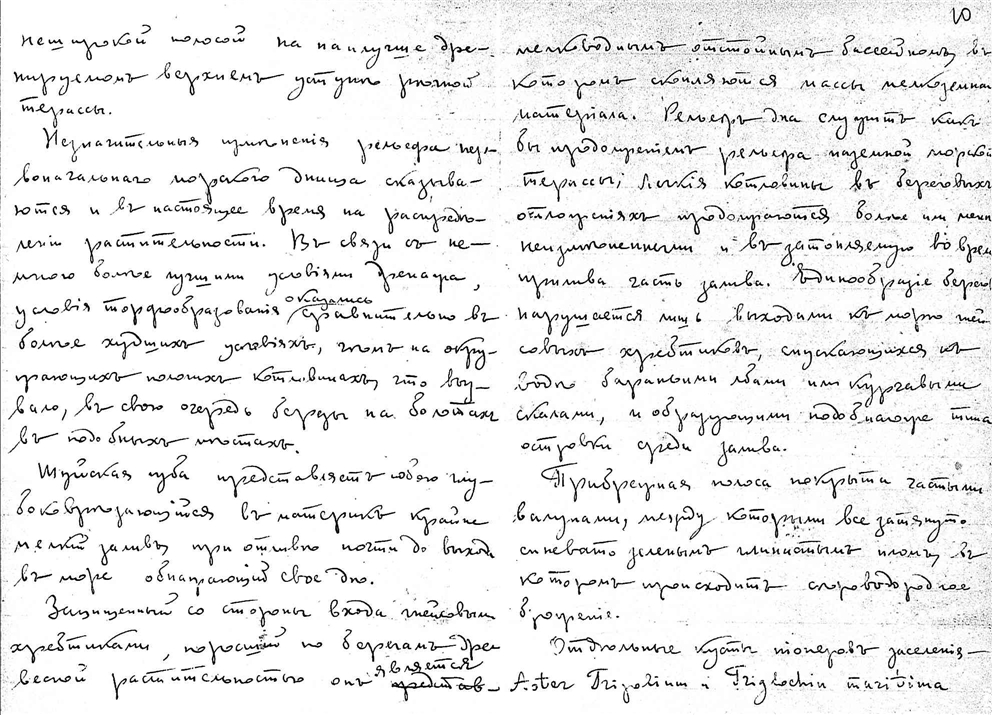 10
нешурокой полосой на наилучше дре-
нируемомъ верхнемъ уступѣ рѣчной
террассы.
Незначительныя измѣненія рельефа пер-
воначальнаго морского днища сказыва-
ются и въ настоящее время на распредѣ-
леніи растительности. Въ связи съ не-
много болѣе лучшими условіями дренажа,
условія торфообразованія оказались сравнительно въ
болѣе худшихъ условіяхъ, чѣмъ на окру-
жающихъ плоскихъ котловинахъ, что выз-
вало, въ свою очередь березы на болотахъ
въ подобныхъ мѣстахъ.
Шуйская губа представляетъ собою глу-
боковрѣзающійся въ материкъ крайне
мелкій заливъ при отливѣ почти до выхода
въ море обнажающій свое дно.
Защищенный со стороны входа гнейсовыми
хребтиками, поросшій по берегамъ дре-
весной растительностью онъ является
мелководнымъ отстойнымъ бассейномъ, въ
которомъ скопляются массы мелкоземнаго
матеріала. Рельефъ дна служитъ какъ
бы продолженіемъ рельефа наземной морской
террассы; мелкія котловины въ береговыхъ
отложеніяхъ продолжаются болѣе или менѣе
неизмѣненными и въ затопляемую во время
прилива часть залива. Единообразіе берега
нарушается лишь выходами къ морю гней-
совыхъ хребтиковъ, спускающихся къ
водѣ бараньими лбами или курчавыми
скалами, и образующими подобнаго же типа
островки среди залива.
Прибрежная полоса покрыта частыми
валунами, между которыми все затянуто
синевато зеленымъ глинистымъ иломъ, въ
которомъ происходитъ сѣроводородное
броженіе.
Отдѣльные кусты піонеровъ заселенія -
Aster Tripolium и Triglochin maritima